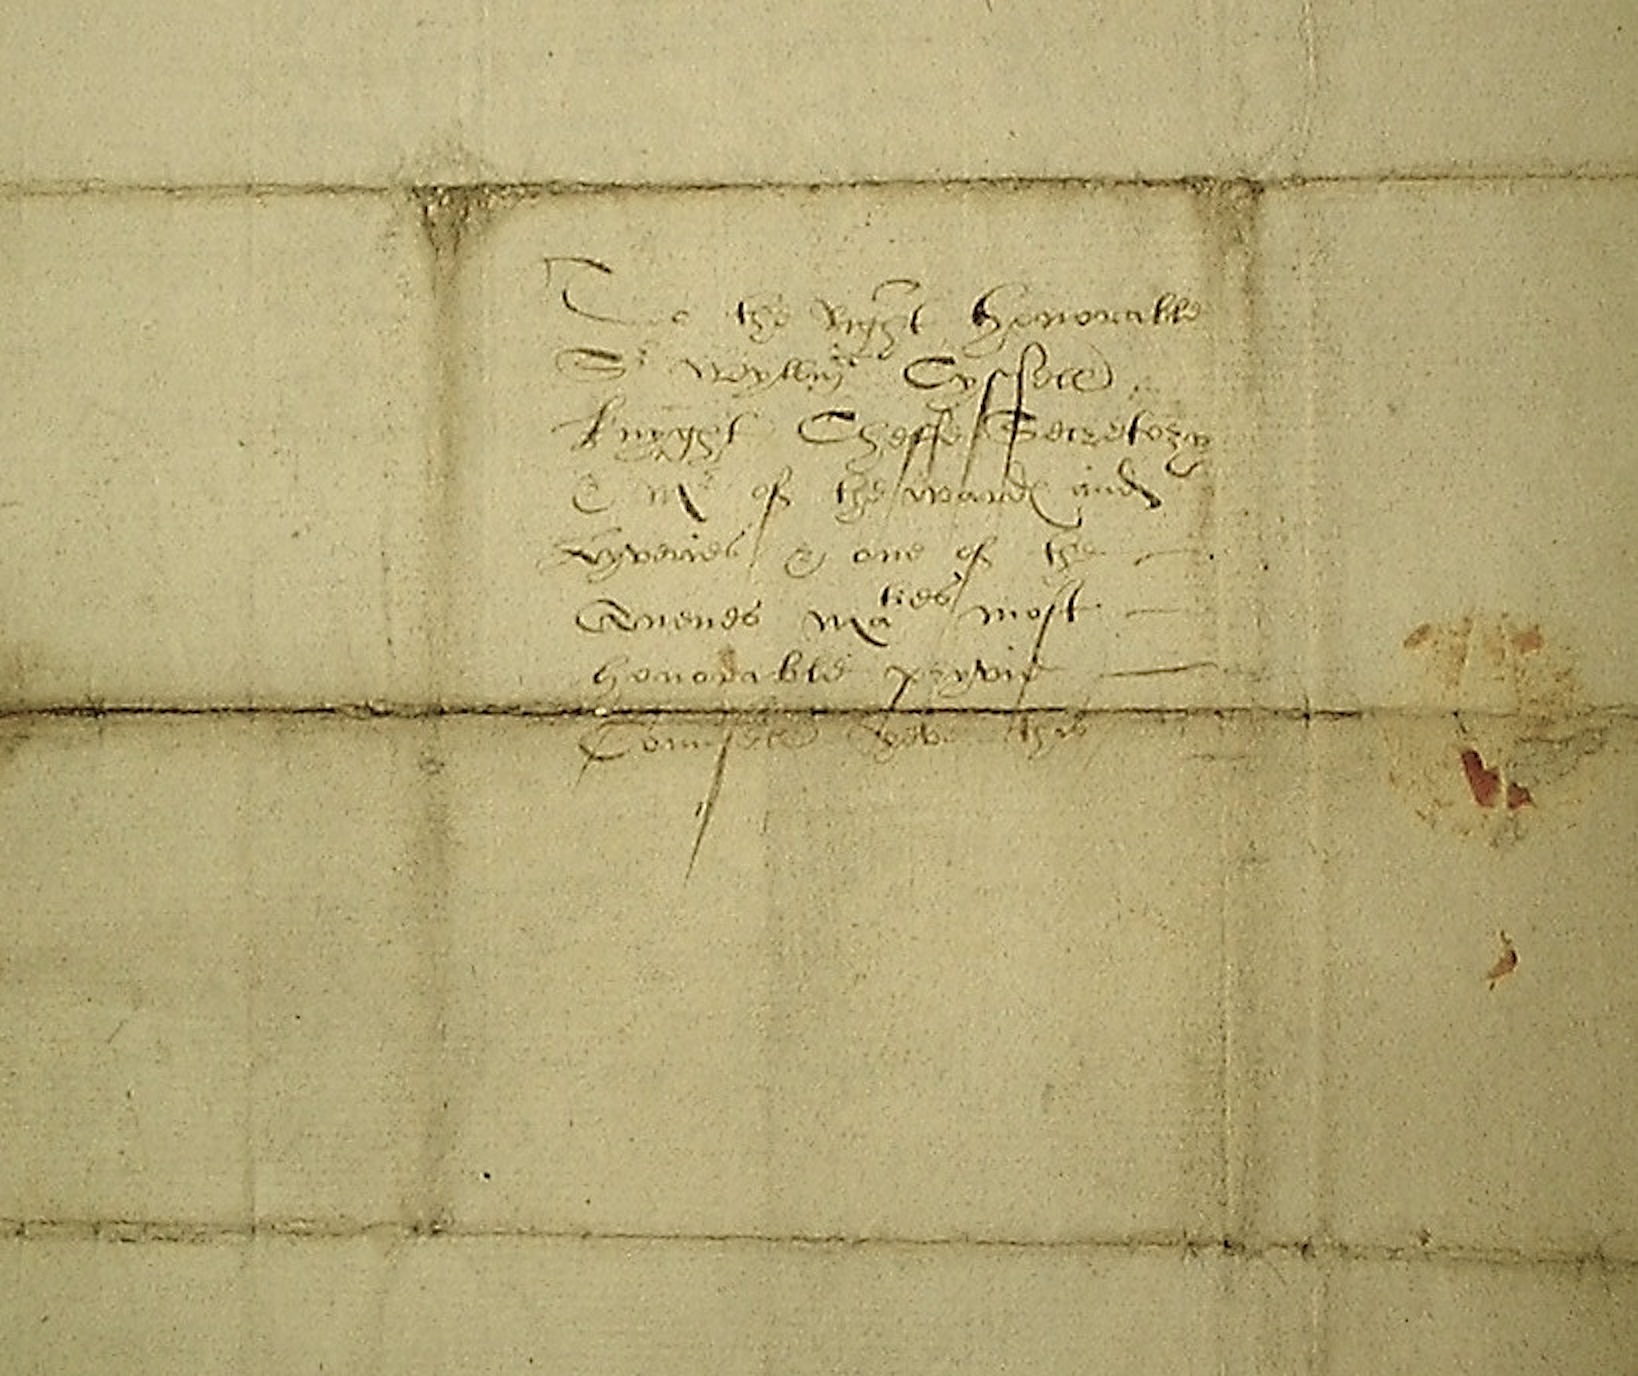 To the Ryght honorable
Sr Wyllm̃ Cyssell
knyght Cheffe Secretory
& Mr of the wards and
lyveries & one of the
Quenes Maties most
honorable pryvie
Counsell yeve this